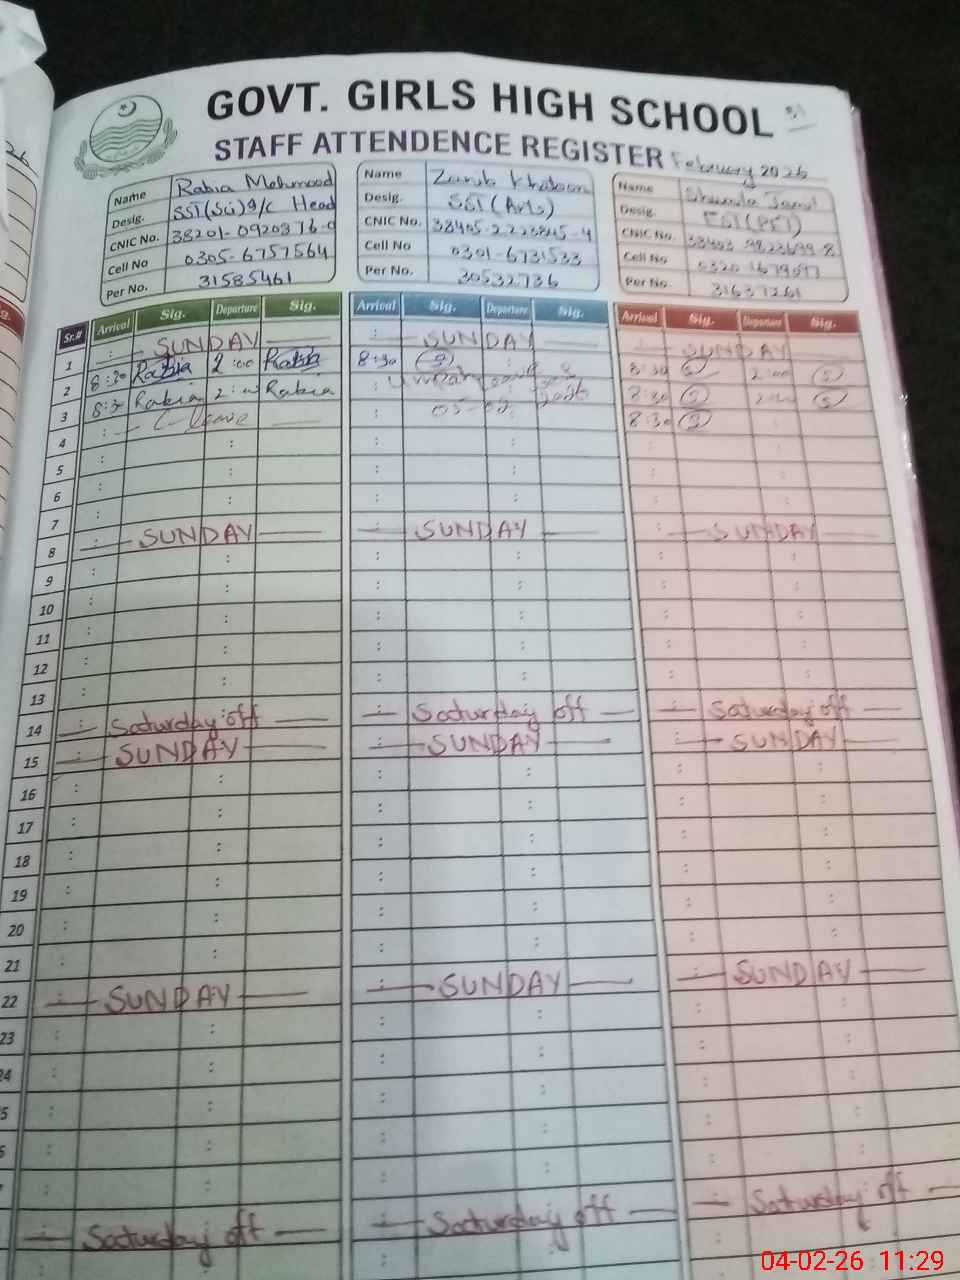 GOVT. GIRLS HIGH SCHOOL
STAFF ATTENDENCE REGISTER February 2026
Name Rabia Mehmood
Desig. SST(Sci) I/C Head
CNIC No.
Cell No 0305-6757564
Per No. 31585461
Name Zainib Khatoon
Desig. SST (Arts)
CNIC No.
Cell No 0301-6731533
Per No. 30532736
Name
Desig.
CNIC No.
Cell No
Per No. 31637261
Sr.# Arrival Sig. Departure Sig. Arrival Sig. Departure Sig. Arrival Sig. Departure Sig.
1 SUNDAY SUNDAY SUNDAY
2 8:30 Rabia 2:00 Rabia 8:30 8:30 2:00
3 8:30 Rabia 2:00 Rabia 2026 8:30 2:00
4 C-leave 8:30
5
6
7
8 SUNDAY SUNDAY SUNDAY
9
10
11
12
13
14 Saturday off Saturday off Saturday off
15 SUNDAY SUNDAY SUNDAY
16
17
18
19
20
21
22 SUNDAY SUNDAY SUNDAY
23
24
Saturday off Saturday off Saturday off
04-02-26 11:29